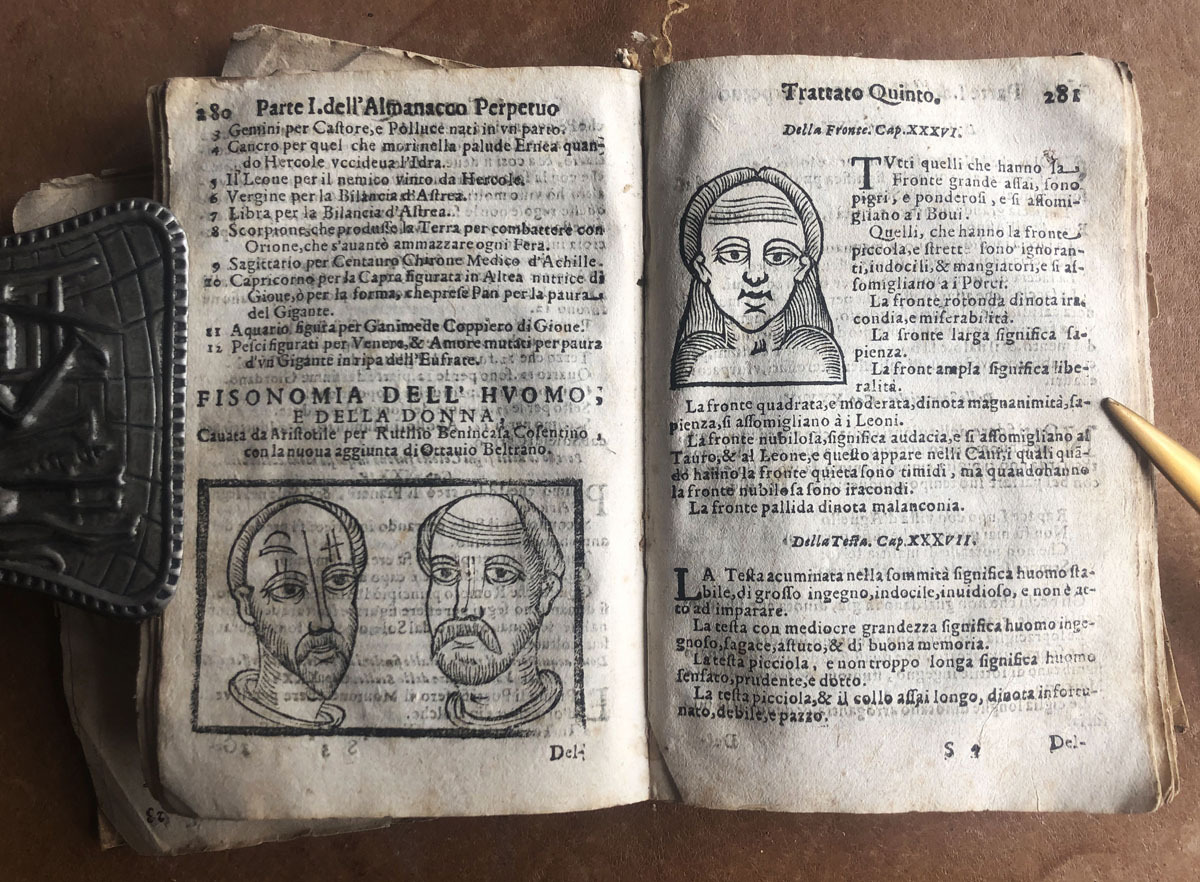 280 Parte I. dell'Almanacco Perpetuo
3 Gemini per Castore, e Polluce nati in vn parto.
4 Cancro per quel che morì nella palude Ernea quan-
do Hercole vccideua l'Idra.
5 Il Leone per il nemico vinto da Hercole.
6 Vergine per la Bilancia d'Astrea.
7 Libra per la Bilancia d'Astrea.
8 Scorpione, che produsse la Terra per combattere con
Orione, che s'auantò ammazzare ogni Fera.
9 Sagittario per Centauro Chirone Medico d'Achille.
10 Capricorno per la Capra figurata in Altea nutrice di
Gioue, ò per la forma, che prese Pan per la paura
del Gigante.
11 Aquario figura per Ganimede Coppiero di Gioue.
12 Pesci figurati per Venere, & Amore mutati per paura
d'vn Gigante in ripa dell'Eufrate.
FISONOMIA DELL' HVOMO;
E DELLA DONNA,
Cauata da Aristotile per Rutilio Benincasa Cosentino,
con la nuoua aggiunta di Ottauio Beltrano.
Del-
Trattato Quinto. 281
Della Fronte. Cap. XXXVI.
TVtti quelli che hanno la
Fronte grande assai, sono
pigri, e ponderosi, e si assomi-
gliano a i Boui.
Quelli, che hanno la fronte
piccola, e strett sono ignoran-
ti, indocili, & mangiatori, e si as-
somigliano a i Porci.
La fronte rotonda dinota ira,
condia, e miserabilità.
La fronte larga significa sa-
pienza.
La front ampla significa libe-
ralità.
La fronte quadrata, e moderata, dinota magnanimità, sa-
pienza, si assomigliano à i Leoni.
La fronte nubilosa, significa audacia, e si assomigliano al
Tauro, & al Leone, e questo appare nelli Cani, i quali quā-
do hanno la fronte quieta sono timidi, ma quando hanno
la fronte nubilosa sono iracondi.
La fronte pallida dinota malanconia.
Della Testa. Cap. XXXVII.
LA Testa acuminata nella sommità significa huomo sta-
bile, di grosso ingegno, indocile, inuidioso, e non è at-
to ad imparare.
La testa con mediocre grandezza significa huomo inge-
gnoso, sagace, astuto, & di buona memoria.
La testa picciola, e non troppo longa significa huomo
sensato, prudente, e dotto.
La testa picciola, & il collo assai longo, dinota infortu-
nato, debile, e pazzo.
S 4 Del-